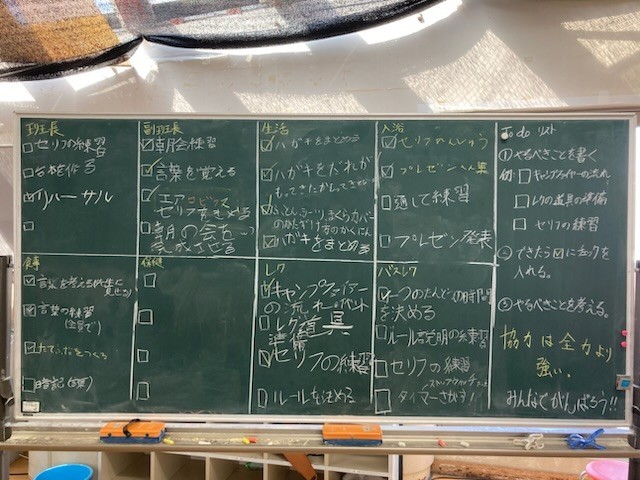 班長
セリフの練習
台本を作る
リハーサル
副班長
朝会練習
言葉を覚える
エアロビクス
セリフをきめる
朝の会をい
完成させる
生活
ハガキをまとめる
ハガキをだれが
もってきたかもってきたか
ふとん、シーツ、まくらカバー
のかたづけ方のかくにん
ハガキをまとめる
入浴
セリフれんしゅう
プレゼン
通して練習
プレゼン発表
To do リスト
①やるべきことを書く
例:キャンプファイヤーの流れ
レクの道具の準備
セリフの練習
②できたら☑にチェックを
入れる。
③やるべきことを考える。
協力は全力より
強い。
みんなでがんばろう!!
食事
言葉を考える(先生に
見せる)
言葉の練習
(全員で)
たてふだをつくる
暗記
保健
レク
キャンプファイヤー
の流れ
レク道具
準備
セリフの練習
ルールを決める
バスレク
一つのたんとうの時間
を決める
ルール説明の練習
セリフの練習
ストップウォッチ
タイマーさがす!